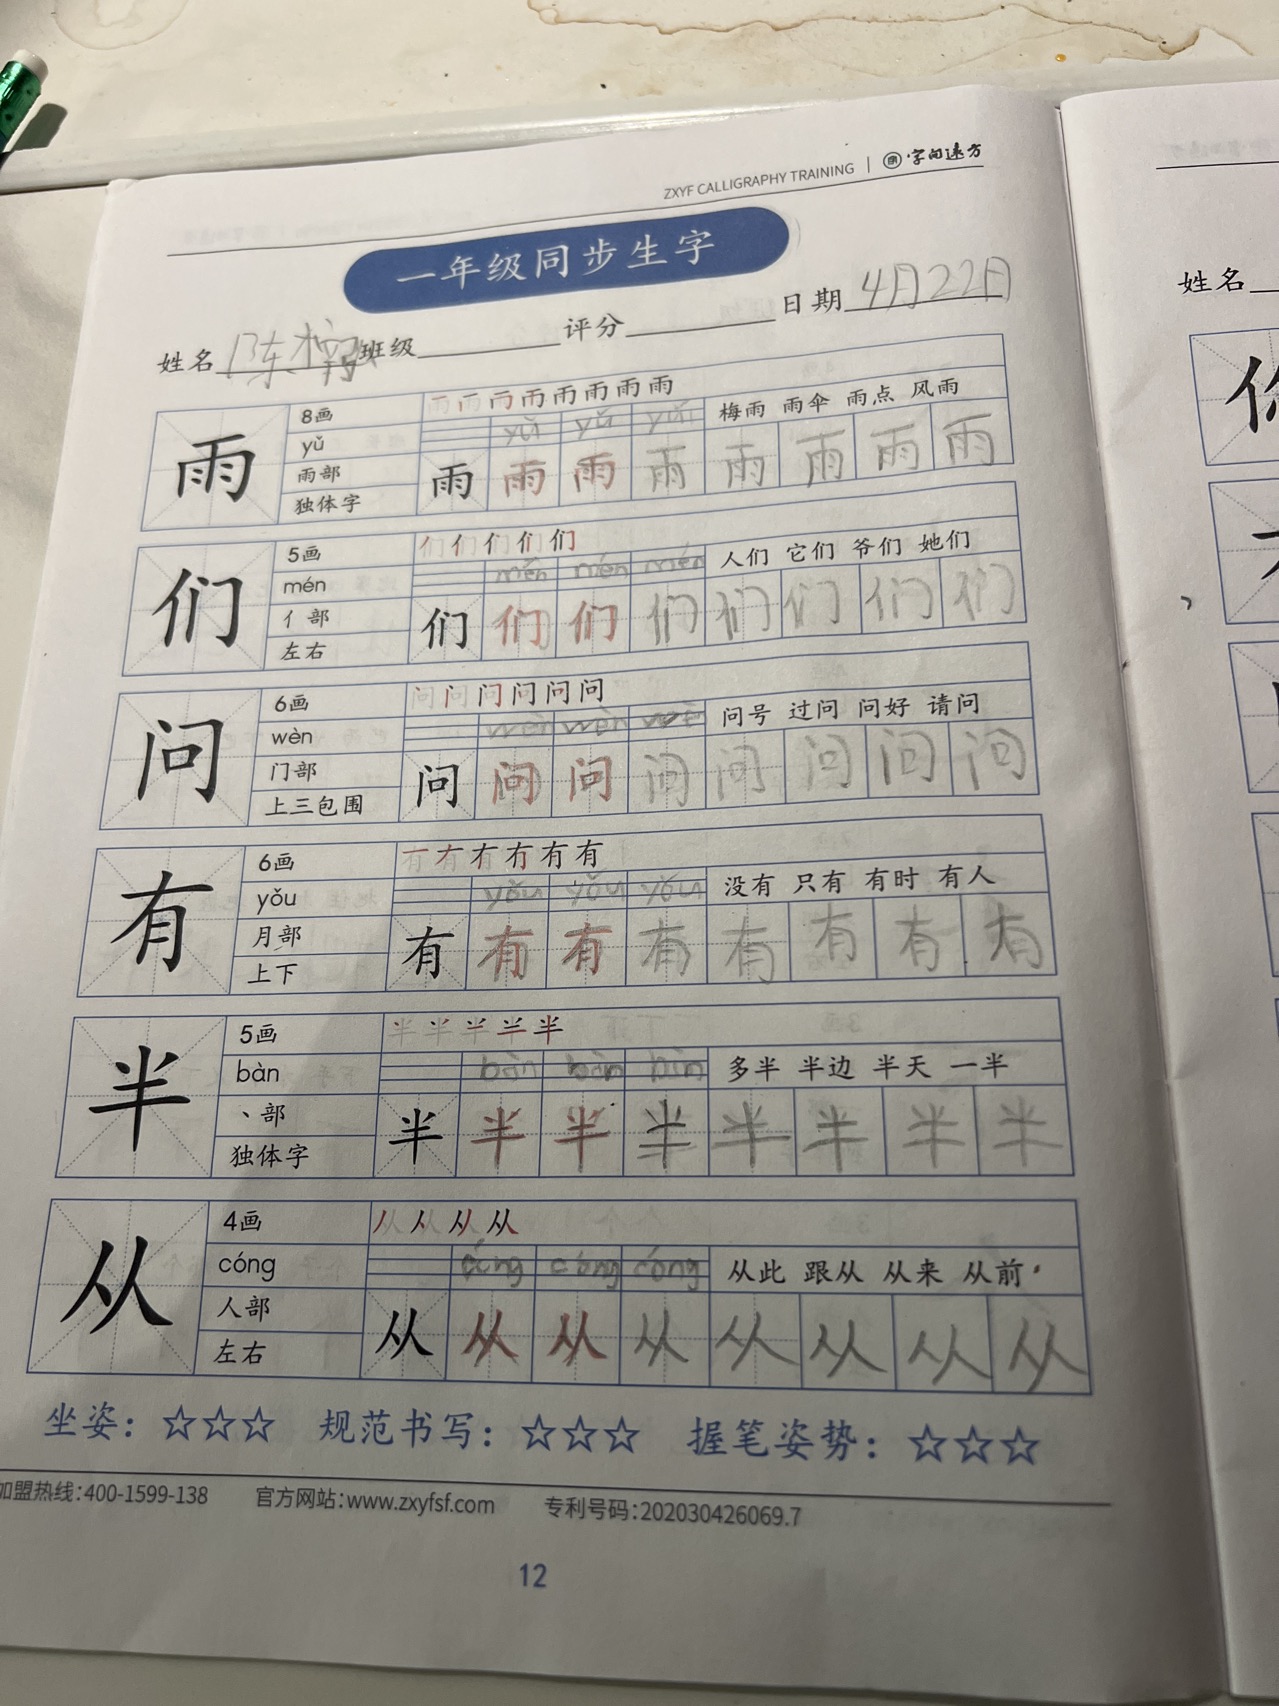 ZXYF CALLIGRAPHY TRAINING | 字间远方
一年级同步生字
姓名 陈 班级 评分 日期 4月22日
雨
8画
yǔ
雨部
独体字
雨 雨 雨 雨 雨 雨 雨 雨
yǔ yǔ yǔ
梅雨 雨伞 雨点 风雨
雨 雨 雨 雨 雨 雨 雨 雨
们
5画
mén
亻部
左右
们 们 们 们 们
mén mén mén
人们 它们 爷们 她们
们 们 们 们 们 们 们 们
问
6画
wèn
门部
上三包围
问 问 问 问 问 问
wèn wèn
问号 过问 问好 请问
问 问 问 问 问 问 问 问
有
6画
yǒu
月部
上下
有 有 有 有 有 有
yǒu yǒu yǒu
没有 只有 有时 有人
有 有 有 有 有 有 有 有
半
5画
bàn
丶部
独体字
半 半 半 半 半
bàn bàn bàn
多半 半边 半天 一半
半 半 半 半 半 半 半 半
从
4画
cóng
人部
左右
从 从 从 从
cóng cóng cóng
从此 跟从 从来 从前
从 从 从 从 从 从 从 从
坐姿：☆☆☆ 规范书写：☆☆☆ 握笔姿势：☆☆☆
加盟热线：400-1599-138 官方网站：www.zxyfsf.com 专利号码：202030426069.7
12
姓名